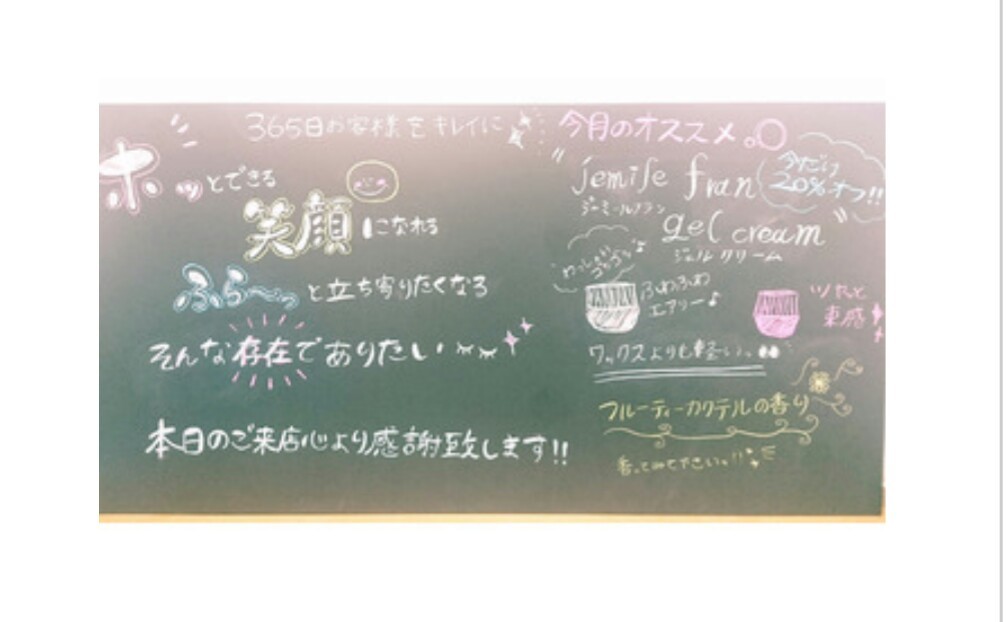 365日お客様をキレイに
ホッとできる
笑顔になれる
ふら〜っと立ち寄りたくなる
そんな存在でありたい
本日のご来店心より感謝致します!!
今月のオススメ。
jemile fran
ジェミールフラン
今だけ
20%オフ!!
gel cream
ジェルクリーム
ふわふわ
エアリー♪
ツヤっと
束感
ワックスよりも軽い。
フルーティーカクテルの香り
香ってみて下さい。!!